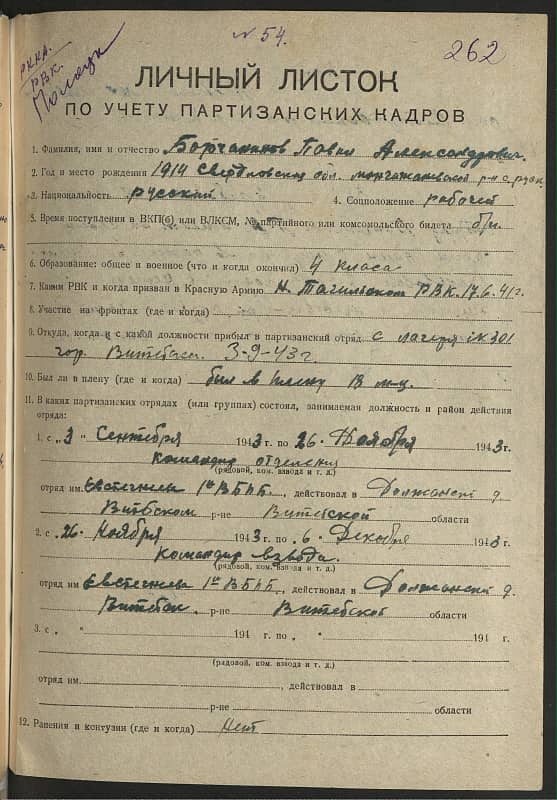 № 54.
262
РККА.
РВК.
Полоцк
ЛИЧНЫЙ ЛИСТОК
ПО УЧЕТУ ПАРТИЗАНСКИХ КАДРОВ
1. Фамилия, имя и отчество Павел Александрович.
2. Год и место рождения 1914 Свердловская обл.
3. Национальность русский 4. Соцположение рабочей
5. Время поступления в ВКП(б) или ВЛКСМ, № партийного или комсомольского билета б/п.
6. Образование: общее и военное (что и когда окончил) 4 класа
7. Каким РВК и когда призван в Красную Армию Н. Тагильском РВК. 17.6.41 г.
8. Участие на фронтах (где и когда)
9. Откуда, когда и с какой должности прибыл в партизанский отряд с лагеря 301
гор. Витебска. 3-9-43 г
10. Был ли в плену (где и когда) был в плену
11. В каких партизанских отрядах (или группах) состоял, занимаемая должность и район действия
отряда:
1. с „3" Сентября 1943 г. по 26 Ноября 1943 г.
Командир отделения
(рядовой, ком. взвода и т. д.)
отряд им. 1ой ВБПБ., действовал в д.
р-не Витебской области
2. с 26 Ноября 1943 г. по 6 Декабря 1943 г.
Командир взвода.
(рядовой, ком. взвода и т. д.)
отряд им. 1ой ВБПБ, действовал в д.
р-не Витебской области
3. с „ " 194 г. по „ " 194 г.
(рядовой, ком. взвода и т. д.)
отряд им. , действовал в
р-не области
12. Ранения и контузии (где и когда) Нет